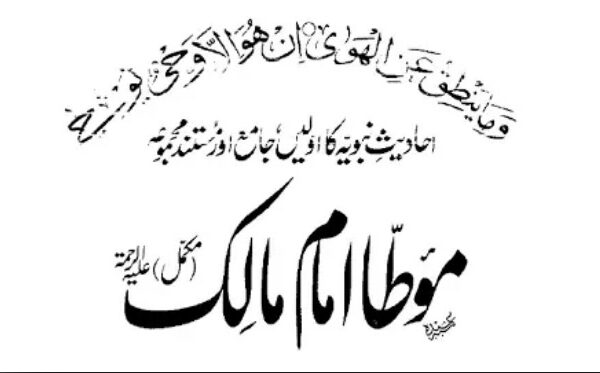 وَمَا يَنْطِقُ عَنِ الْهَوٰى ۝ اِنْ هُوَ اِلَّا وَحْیٌ یُّوْحٰی
احادیثِ نبویہ کا اولیں جامع اور مستند مجموعہ
مؤطّا امام مالِک علیہ الرحمۃ (مکمّل)